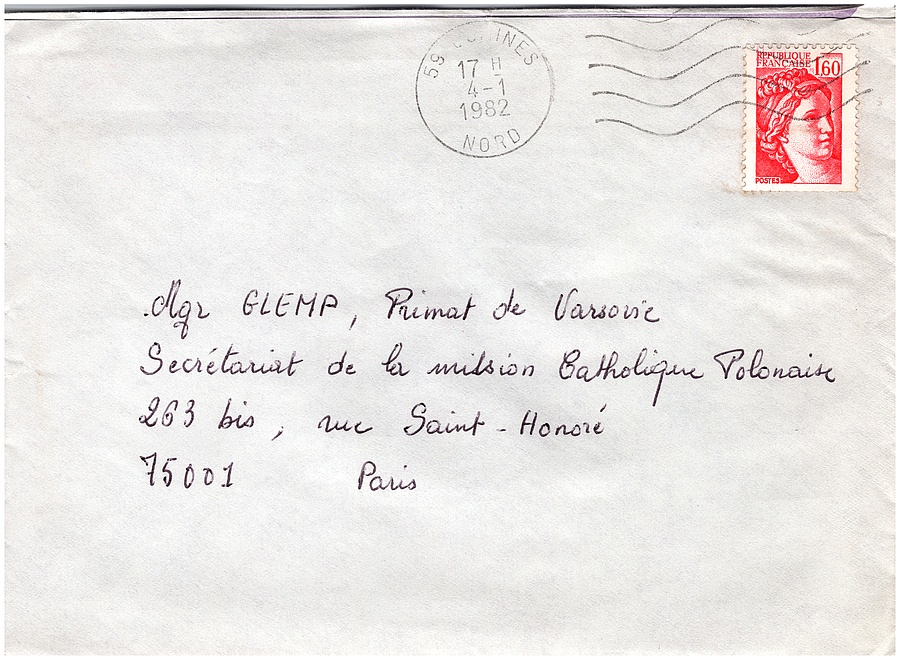 59 COMINES
17 H
4-1
1982
NORD
RÉPUBLIQUE
FRANÇAISE
1,60
POSTES
Mgr GLEMP, Primat de Varsovie
Secrétariat de la mission Catholique Polonaise
263 bis, rue Saint-Honoré
75001 Paris